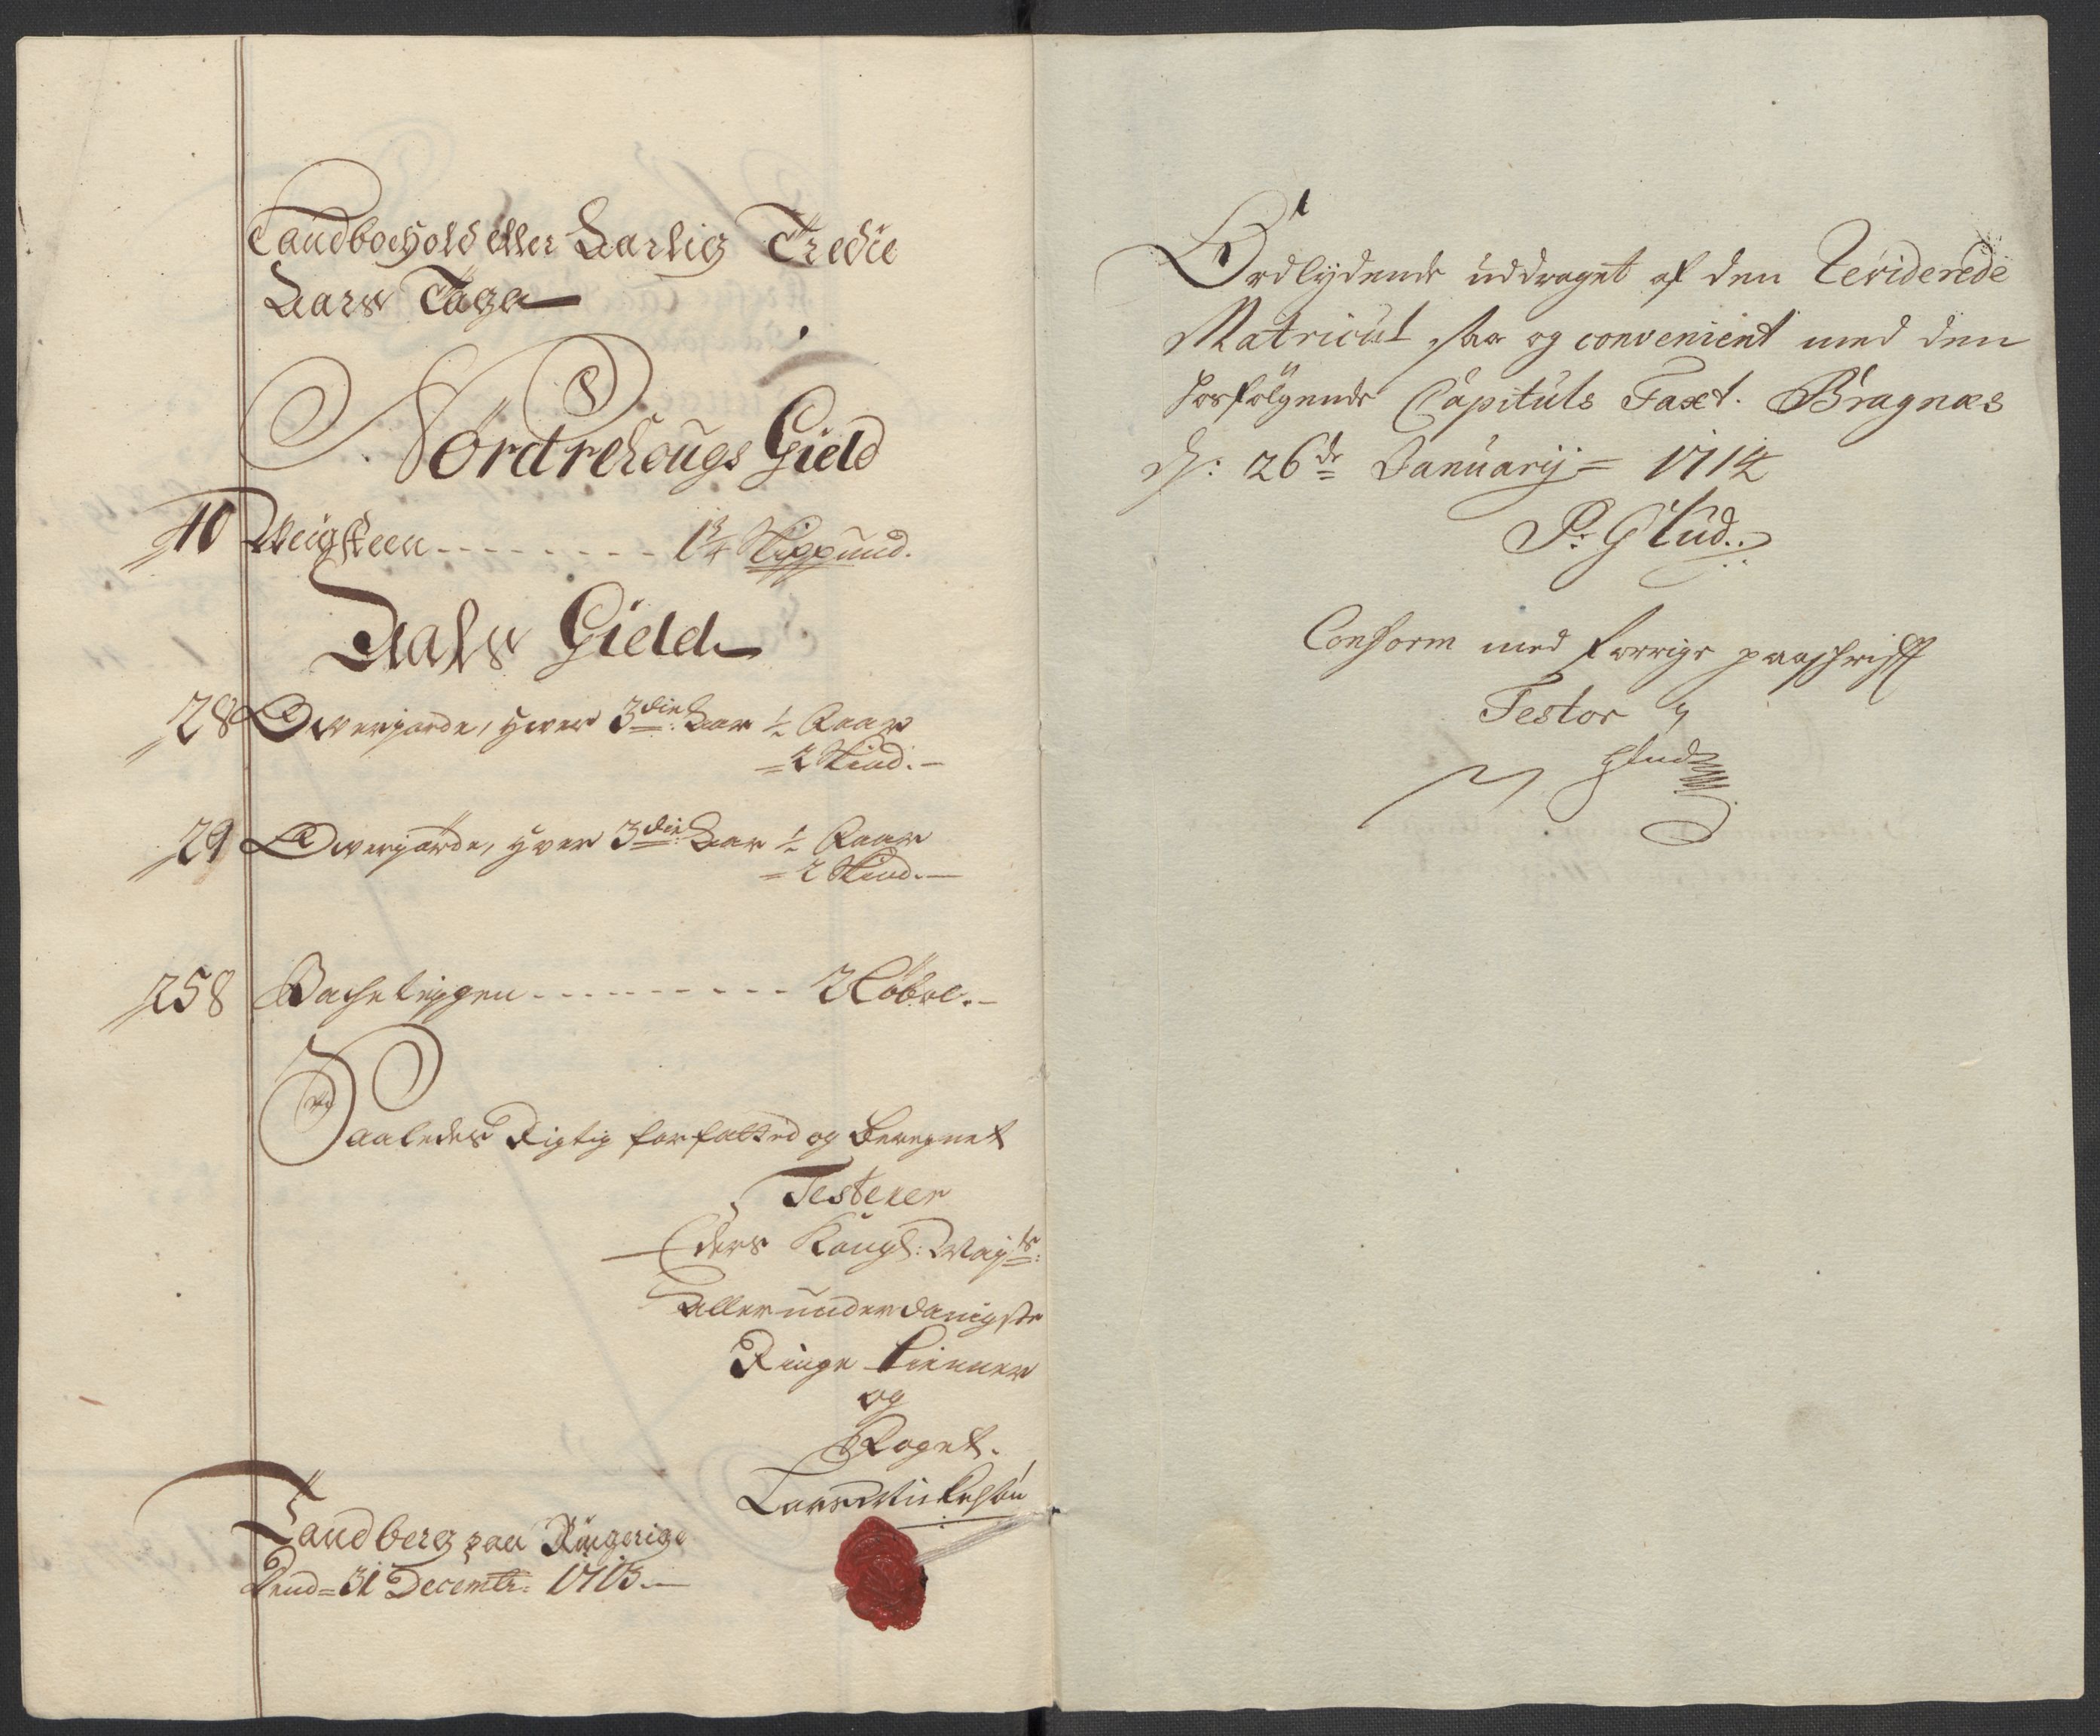 Landboehold eller Aarlig Tredie
Aars Tage
Nordrehougs Gield
10 Weigsteen - - - - - - - - 1¾ Skippund.
Aals Gield
28 Overjorde, hver 3die: Aar ½ Aaar
= 2 Skind. -
29 Overjorde, hver 3die: Aar ½ Aaar
= 2 Skind. -
258 Bache - - - - - - - - - - 2 Købol. -
Saaledes Rigtig forfatted og Beregnet
Testerer
Eders Kongl: Maÿts:
Allerunderdanigste
Ringe tienner
og
Foget.
Lars
Tandberg paa Ringerige
Dend = 31 Decembr: 1713. -
Ordlydende uddraget af den Reviderede
Matricul, saa og convenient med den
hosfølgende Capituls Taxt. Bragnæs
d: 26de Januarij = 1714
P: Glud.
Conform med forrige paaschrifft
Testor
Glud